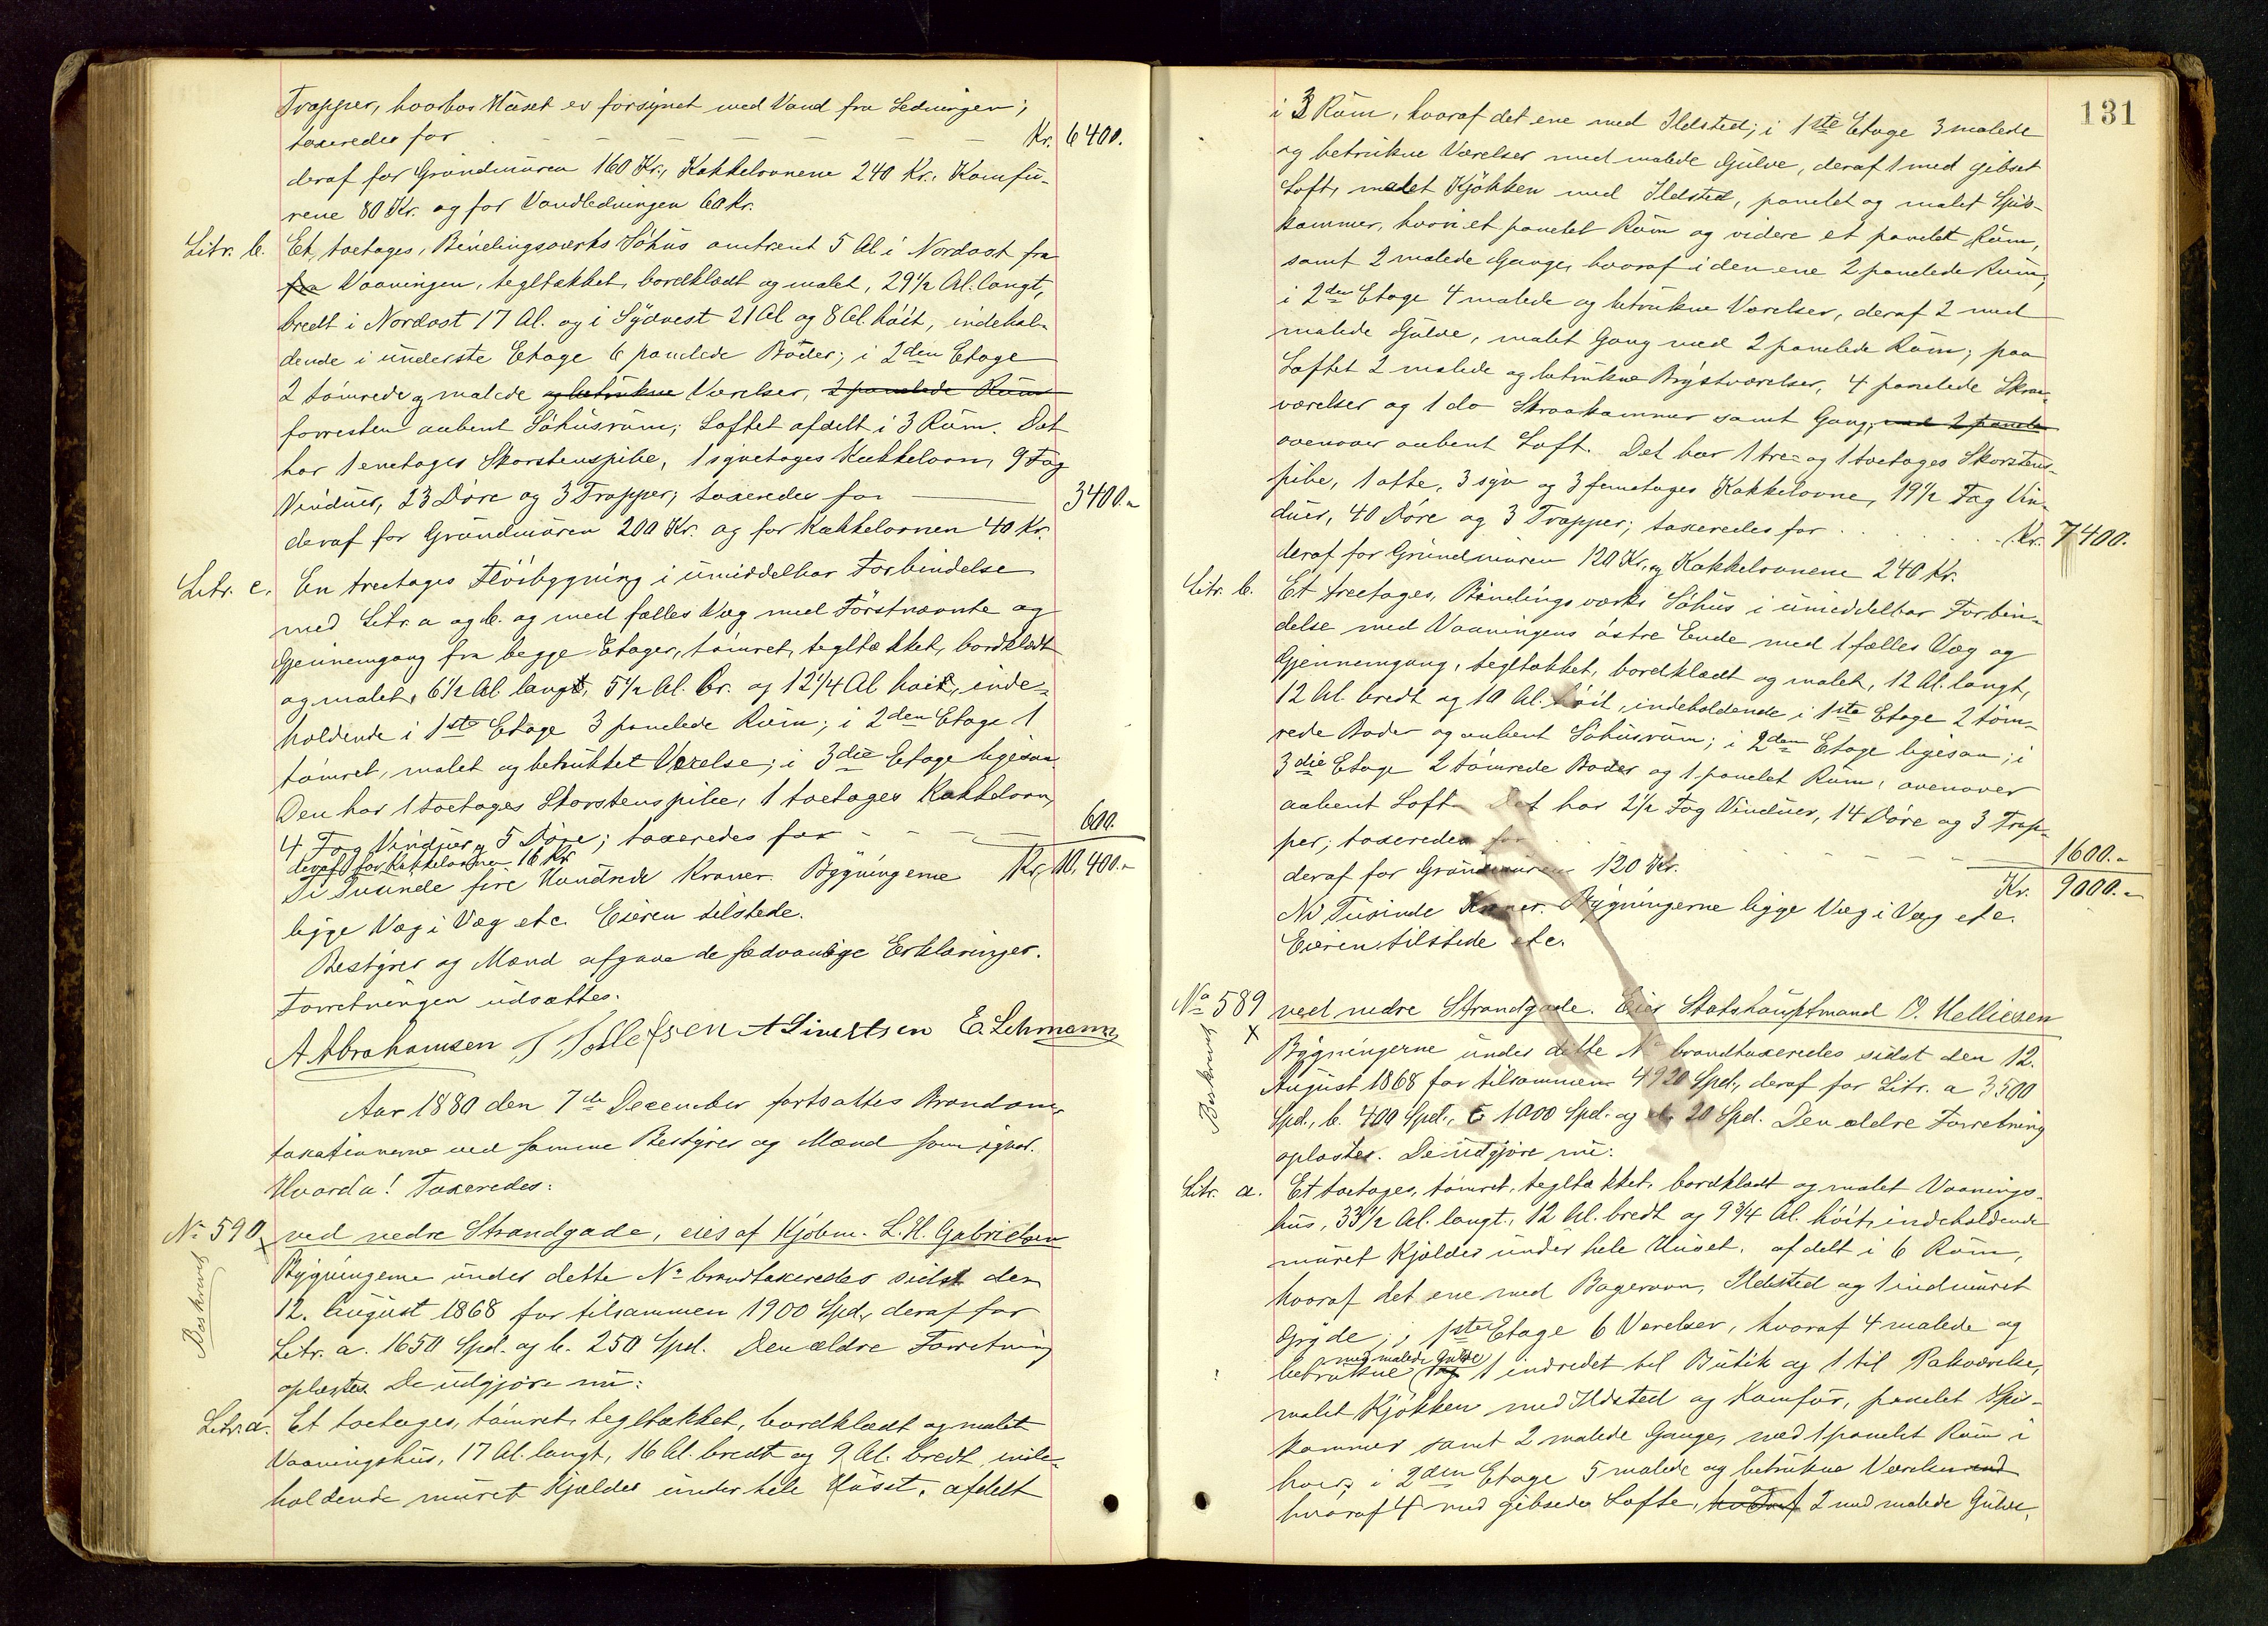 Trapper, hvorhos Huset er forsynet med Vand fra Ledningen;
taxeredes for Kr. 6400.
deraf for Grundmuren 160 Kr., Kakkelovnene 240 Kr., Komfu-
rene 80 Kr. og for Vandledningen 60 Kr.
Litr. b. Et toetages, Bindingsværks Söhus omtrent 5 Al. i Nordost fra
fra Vaaningen, tegltækket, bordklædt og malet, 29 1/2 Al. langt,
bredt i Nordost 17 Al. og i Sydvest 21 Al og 8 Al. höit, indehol-
dende i underste Etage 6 panelede Boder; i 2den Etage
2 tömrede og malede og betrukne Værelser, 2 panelede Rum
forresten aabent Söhusrum; Loftet afdelt i 3 Rum. Det
har 1 enetages Skorstenspibe, 1 syvetages Kakkelovn, 9 Fag
Vinduer, 23 Döre og 3 Trapper; taxeredes for 3400.-
deraf for Grundmuren 200 Kr. og for Kakkelovnen 40 Kr.
Litr. c. En treetages Flöibygning i umiddelbar Forbindelse
med Litr. a og b. og med fælles Væg med Förstnævnte og
Gjennemgang fra begge Etager, tömret, tegltækket, bordklædt
og malet, 6 1/2 Al. langt, 5 1/2 Al. br. og 12 1/4 Al höit, inde-
holdende i 1ste Etage 3 panelede Rum; i 2den Etage 1
tömret, malet og betrukket Værelse; i 3die Etage ligesaa.
Den har 1 toetages Skorstenspibe, 1 toetages Kakkelovn,
4 Fag Vinduer og 5 Döre; taxeredes for 600.
deraf for Kakkelovnen 16 Kr.
Ti Tusinde fire Hundrede Kroner. Bygningerne Kr. 10,400.-
ligge Væg i Væg etc. Eieren tilstede.
Bestyrer og Mænd afgave de sædvanlige Erklæringer.
Forretningen udsattes.
A Abrahamsen T Tollefsen A Sivertsen E. Lehmann
Aar 1880 den 7de December fortsattes Brandom-
taxationerne ved samme Bestyrer og Mænd som igaar.
Hvorda! Taxeredes:
No 590 ved nedre Strandgade, eies af Kjöbm. L. H. Gabrielsen
Beskrevet
Bygningerne under dette No brandtaxeredes sidst den
12. August 1868 for tilsammen 1900 Spd., deraf for
Litr. a. 1650 Spd. og b. 250 Spd. Den ældre Forretning
oplæstes. De udgjöre nu:
Litr. a. Et toetages, tömret, tegltækket, bordklædt og malet
Vaaningshus, 17 Al. langt, 16 Al. bredt og 9 Al. bredt, inde-
holdende muret Kjælder under hele Huset, afdelt
131
i 3 Rum, hvoraf det ene med Ildsted; i 1ste Etage 3 malede
og betrukne Værelser med malede Gulve, deraf 1 med gibset
Loft, malet Kjökken med Ildsted, panelet og malet Spis-
kammer, hvori et panelet Rum og videre et panelet Rum,
samt 2 malede Gange, hvoraf i den ene 2 panelede Rum;
i 2den Etage 4 malede og betrukne Værelser, deraf 2 med
malede Gulve, malet Gang med 2 panelede Rum; paa
Loftet 2 malede og betrukne Brystværelser, 4 panelede Skraa-
værelser og 1 do Skraakammer samt Gang, med 2 panele
ovenover aabent Loft. Det har 1 tre- og 1 toetages Skorstens-
pibe, 1 otte, 3 syv og 3 femetages Kakkelovne, 19 1/2 Fag Vin-
duer, 40 Döre og 3 Trapper; taxeredes for Kr. 7400.
deraf for Grundmuren 120 Kr. og Kakkelovnene 240 Kr.
Litr. b. Et treetages, Bindingsværks Söhus i umiddelbar Forbin-
delse med Vaaningens östre Ende med 1 fælles Væg og
Gjennemgang, tegltækket, bordklædt og malet, 12 Al. langt,
12 Al. bredt og 10 Al. höit, indeholdende i 1ste Etage 2 töm-
rede Boder og aabent Söhusrum; i 2den Etage ligesaa; i
3die Etage 2 tömrede Boder og 1 panelet Rum, ovenover
aabent Loft. Det har 2 1/2 Fag Vinduer, 14 Döre og 3 Trap-
per; taxeredes for 1600.-
deraf for Grundmuren 120 Kr. Kr. 9000.-
Ni Tusinde Kroner. Bygningerne ligge Væg i Væg etc.
Eieren tilstede etc.
No 589 ved nedre Strandgade. Eier Stadshauptmand O. Helliesen
Beskrevet
Bygningerne under dette No brandtaxeredes sidst den 12.
August 1868 for tilsammen 4920 Spd., deraf for Litr. a 3500
Spd., b. 400 Spd., c 1000 Spd. og d. 20 Spd. Den ældre Forretning
oplæstes. De udgjöre nu:
Litr. a. Et toetages, tömret, tegltækket, bordklædt og malet Vaanings-
hus, 33 1/2 Al. langt, 12 Al. bredt og 9 3/4 Al. höit, indeholdende
muret Kjælder under hele Huset, afdelt i 6 Rum,
hvoraf det ene med Bagerovn, Ildsted og 1 indmuret
Gryde; i 1ste Etage 6 Værelser, hvoraf 4 malede og
med malede Gulve
betrukne 1 indredet til Butik og 1 til Pakværelse,
malet Kjökken med Ildsted og Komfur, panelet Spis-
kammer samt 2 malede Gange, med 1 panelet Rum i
hver; i 2den Etage 5 malede og betrukne Værelser med
hvoraf 4 med gibsede Lofte, hvoraf og 2 med malede Gulve,